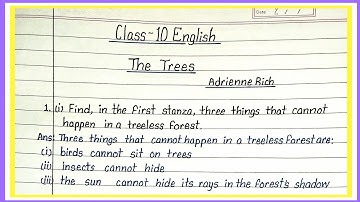 Date / /
Class-10 English
The Trees
Adrienne Rich
1. (i) Find, in the first stanza, three things that cannot
happen in a treeless forest.
Ans: Three things that cannot happen in a treeless forest are:
(i) birds cannot sit on trees
(ii) insects cannot hide
(iii) the sun cannot hide its rays in the forest's shadow